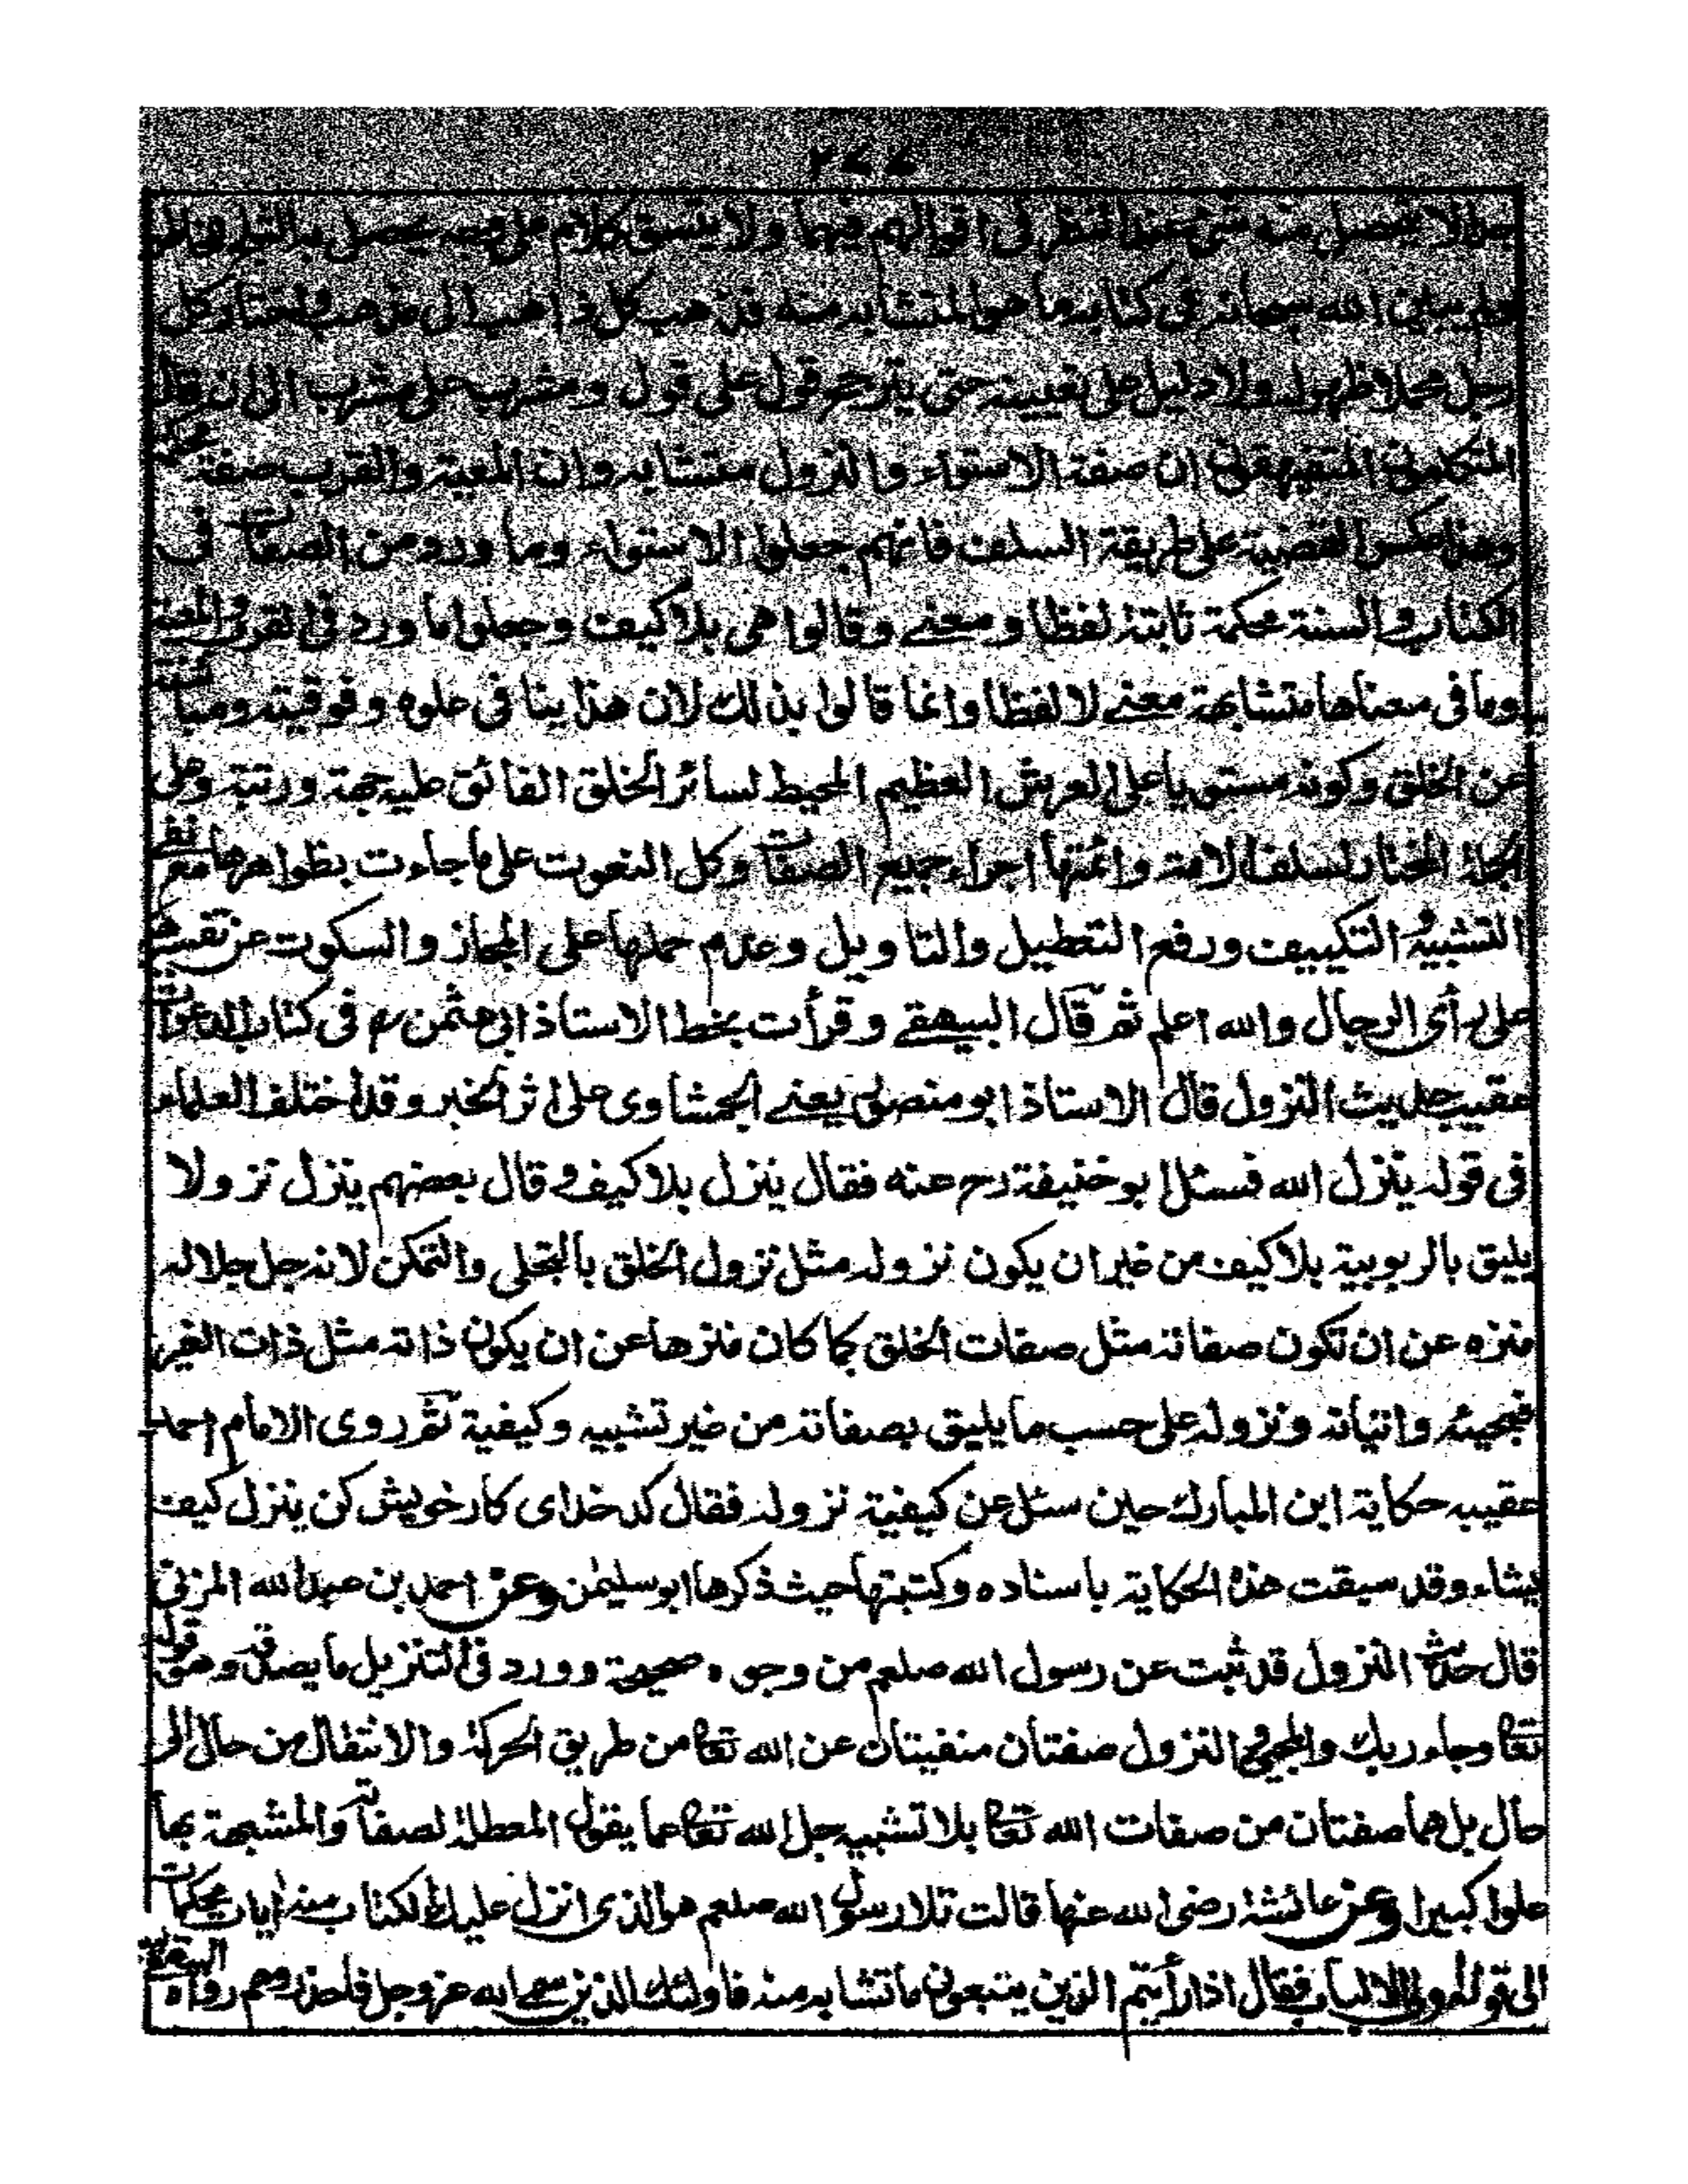 ٢٧٧
لا يتحصل منه شئ عند النظر فى اقوالهم فيها ولا يتسق كلام على وجه يحصل به
يبين الله سبحانه فى كتابه ما هو المتشابه منه فذهب كل ذاهب الى مذهب وكل
رجل محملا ظهر له ولا دليل على تعيينه حتى يترجح قول على قول ومشرب على مشرب الى ان قال
المتكلمون المتفيهقون ان صفة الاستواء والنزول متشابه وان المعية والقرب صفة محكمة
وهذا عكس القضية على طريقة السلف فانهم جعلوا الاستواء وما ورد من الصفات فى
الكتاب والسنة محكمة ثابتة لفظا ومعنے وقالوا هى بلا كيف وجعلوا ما ورد فى القرب والمعية
وما فى معناها متشابهة معنے لا لفظا وانما قالوا بذلك لان هذا ينافى علوه وفوقيته ومباينته
عن الخلق وكونه مستويا على العرش العظيم المحيط لسائر الخلق الفائق عليه جهة ورتبة وعلى
الجملة المختار لسلف الامة وائمتها اجراء جميع الصفات وكل النعوت على ما جاءت بظواهرها مع نفى
التشبيه والتكييف ورفع التعطيل والتاويل وعدم حملها على المجاز والسكوت عن تفسيرها
على رأى الرجال والله اعلم ثم قال البيهقے وقرأت بخط الاستاذ ابى عثمن رح فى كتاب الدعوات
عقيب حديث النزول قال الاستاذ ابو منصور يعنے الحمشاوى على اثر الخبر وقد اختلف العلماء
فى قوله ينزل الله فسئل ابو حنيفة رح عنه فقال ينزل بلا كيف وقال بعضهم ينزل نزولا
يليق بالربوبية بلا كيف من غير ان يكون نزوله مثل نزول الخلق بالتجلى والتمكن لانه جل جلاله
منزه عن ان تكون صفاته مثل صفات الخلق كما كان منزها عن ان يكون ذاته مثل ذات الغير
فمجيئه واتيانه ونزوله على حسب ما يليق بصفاته من غير تشبيه وكيفية ثم روى الامام احمد
عقيبه حكاية ابن المبارك حين سئل عن كيفية نزوله فقال كد خداى كار خويش كن ينزل كيف
يشاء وقد سبقت هذه الحكاية باسناده وكتبتها حيث ذكرها ابو سليمٰن وعن احمد بن عبد الله المزنى
قال حديث النزول قد ثبت عن رسول الله صلعم من وجوه صحيحة وورد فى التنزيل ما يصدقه وهو قوله
تعا وجاء ربك والمجئ والنزول صفتان منفيتان عن الله تعا من طريق الحركة والانتقال من حال الى
حال بل هما صفتان من صفات الله تعا بلا تشبيه جل الله تعا عما يقول المعطلة لصفاته والمشبهة بها
علوا كبيرا وعن عائشة رضى الله عنها قالت تلا رسول الله صلعم هو الذى انزل عليك الكتاب منه ايات محكمات
الى قوله اولوا الالباب فقال اذا رأيتم الذين يتبعون ما تشابه منه فاولئك الذين سمے الله عز وجل فاحذروهم رواه البيهقے